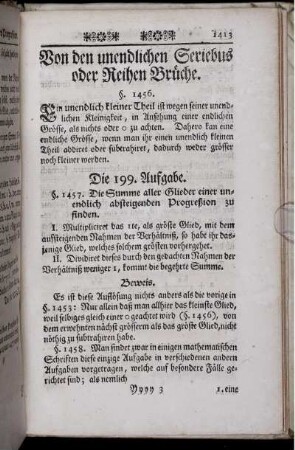 1413
Von den unendlichen Seriebus
oder Reihen Brüche.
§. 1456.
Ein unendlich kleiner Theil ist wegen seiner unend-
lichen Kleinigkeit, in Ansehung einer endlichen
Grösse, als nichts oder 0 zu achten. Dahero kan eine
endliche Grösse, wenn man ihr einen unendlich kleinen
Theil addiret oder subtrahiret, dadurch weder grösser
noch kleiner werden.
Die 199. Aufgabe.
§. 1457. Die Summe aller Glieder einer un-
endlich absteigenden Progreßion zu
finden.
I. Multipliciret das 1te, als gröste Glied, mit dem
aufsteigenden Nahmen der Verhältniß, so habe ihr das-
jenige Glied, welches solchem grösten vorhergehet.
II. Dividiret dieses durch den gedachten Nahmen der
Verhältniß weniger 1, kommt die begehrte Summe.
Beweis.
Es ist diese Auflösung nichts anders als die vorige in
§. 1453: Nur allein daß man allhier das kleinste Glied,
weil selbiges gleich einer 0 geachtet wird (§. 1456), von
dem erwehnten nächst grösserm als das gröste Glied, nicht
nöthig zu subtrahiren habe.
§. 1458. Man findet zwar in einigen mathematischen
Schriften diese einzige Aufgabe in verschiedenen andern
Aufgaben vorgetragen, welche auf besondere Fälle ge-
richtet sind; als nemlich
Yyyy 3 1. eine